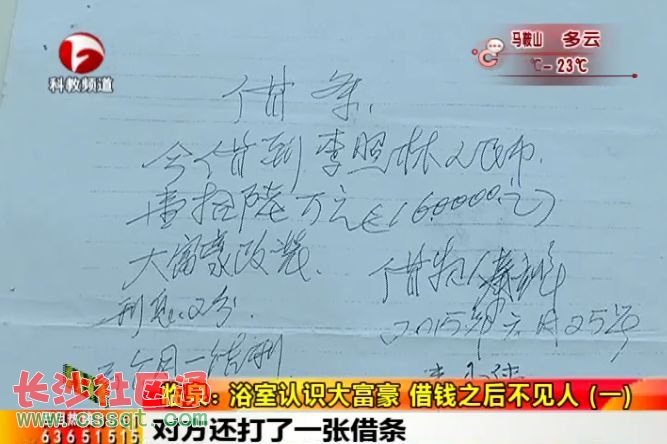 科教频道
马鞍山 多云
℃-23℃
借条
今借到李照林人民币
壹拾陆万元(160000元)
大富豪改装
借款人
利息:2分
2015年六月25号
个月一结利
长沙社区通
www.cssqt.com
临泉:浴室认识大富豪 借钱之后不见人(一)
63651515
对方还打了一张借条